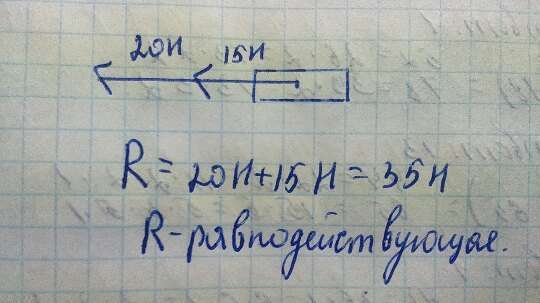 20Н 15Н
R = 20Н+15Н = 35Н
R-равнодействующая.